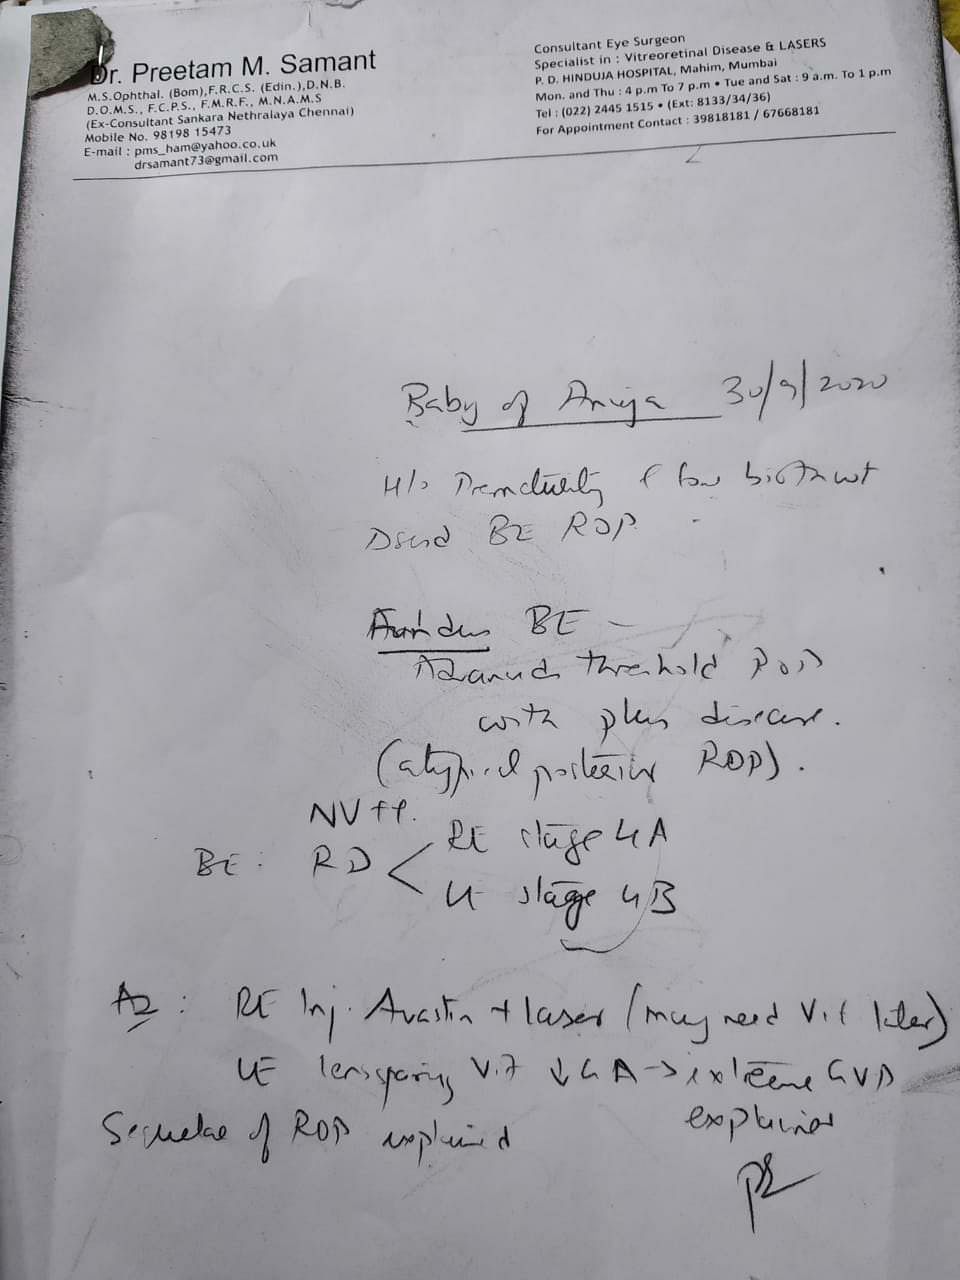 Dr. Preetam M. Samant
M.S.Ophthal. (Bom),F.R.C.S. (Edin.),D.N.B.
D.O.M.S., F.C.P.S., F.M.R.F., M.N.A.M.S
(Ex-Consultant Sankara Nethralaya Chennai)
Mobile No. 98198 15473
E-mail : pms_ham@yahoo.co.uk
drsamant73@gmail.com
Consultant Eye Surgeon
Specialist in : Vitreoretinal Disease & LASERS
P. D. HINDUJA HOSPITAL, Mahim, Mumbai
Mon. and Thu : 4 p.m To 7 p.m • Tue and Sat : 9 a.m. To 1 p.m
Tel : (022) 2445 1515 • (Ext: 8133/34/36)
For Appointment Contact : 39818181 / 67668181
Baby of 30/9/2020
H/o Prematurity & low birth wt
BE ROP
Fundus BE -
Advanced threshold ROP
with plus disease.
(atypical posterior ROP).
NV ++.
BE : RD < RE stage 4A
LE stage 4B
RE Inj. Avastin + laser (may need Vit later)
LE lens sparing Vit ↓ GA → extreme GVP
explained
Sequelae of ROP explained